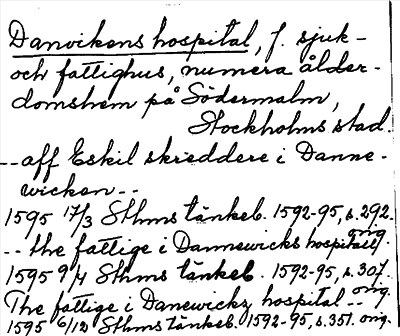 Danvikens hospital, f. sjuk-
och fattighus, numera ålder-
domshem på Södermalm,
Stockholms stad.
-- aff Eskil skreddere i Danne-
wicken --
1595 17/3 Sthms tänkeb. 1592-95, s. 292.
orig.
-- the fattige i Dannewicks hospitall.
1595 9/4 Sthms tänkeb. 1592-95, s. 307.
orig.
The fattige i Danewickz hospital --
1595 6/12 Sthms tänkeb. 1592-95, s. 351. orig.